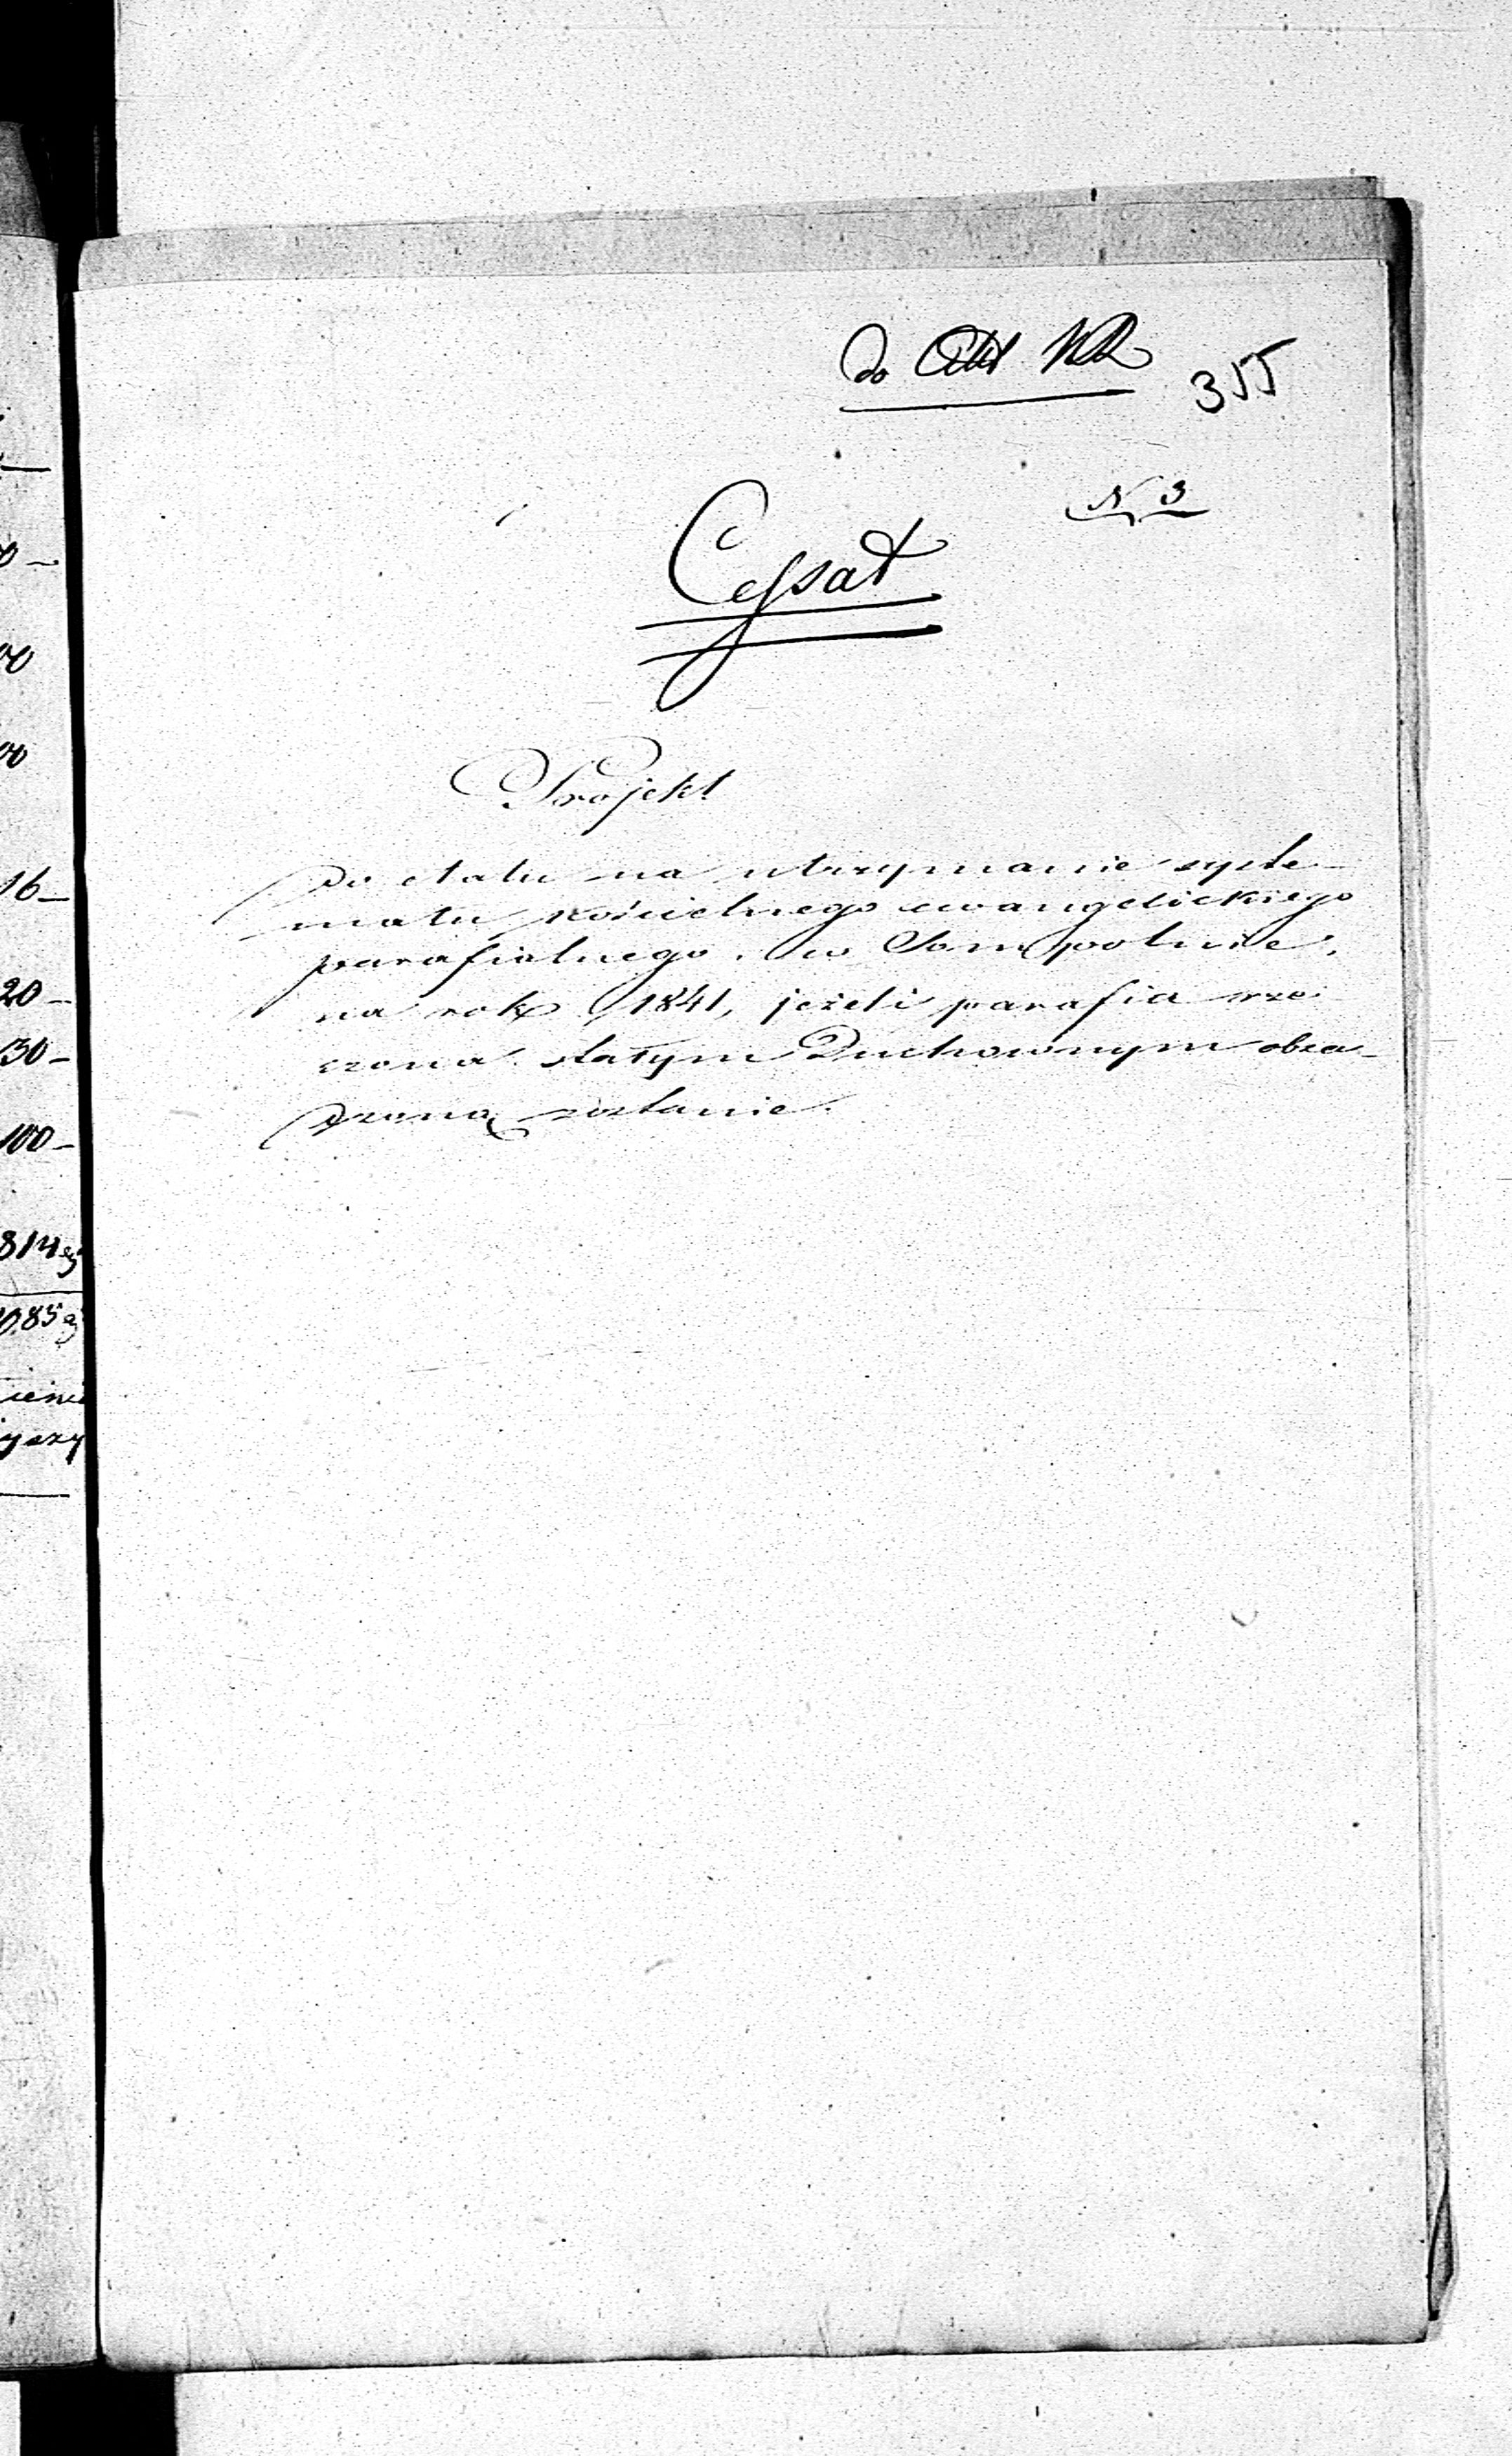 do
355
N 3
Cessat
Projekt
do etatu na utrzymanie syste-
matu kościelnego ewangelickiego
parafialnego w Sompolnie,
na rok 1841, jeżeli parafia rze-
czona stałym Duchownym obsa-
dzoną zostanie.
16-
20-
30-
100-
814